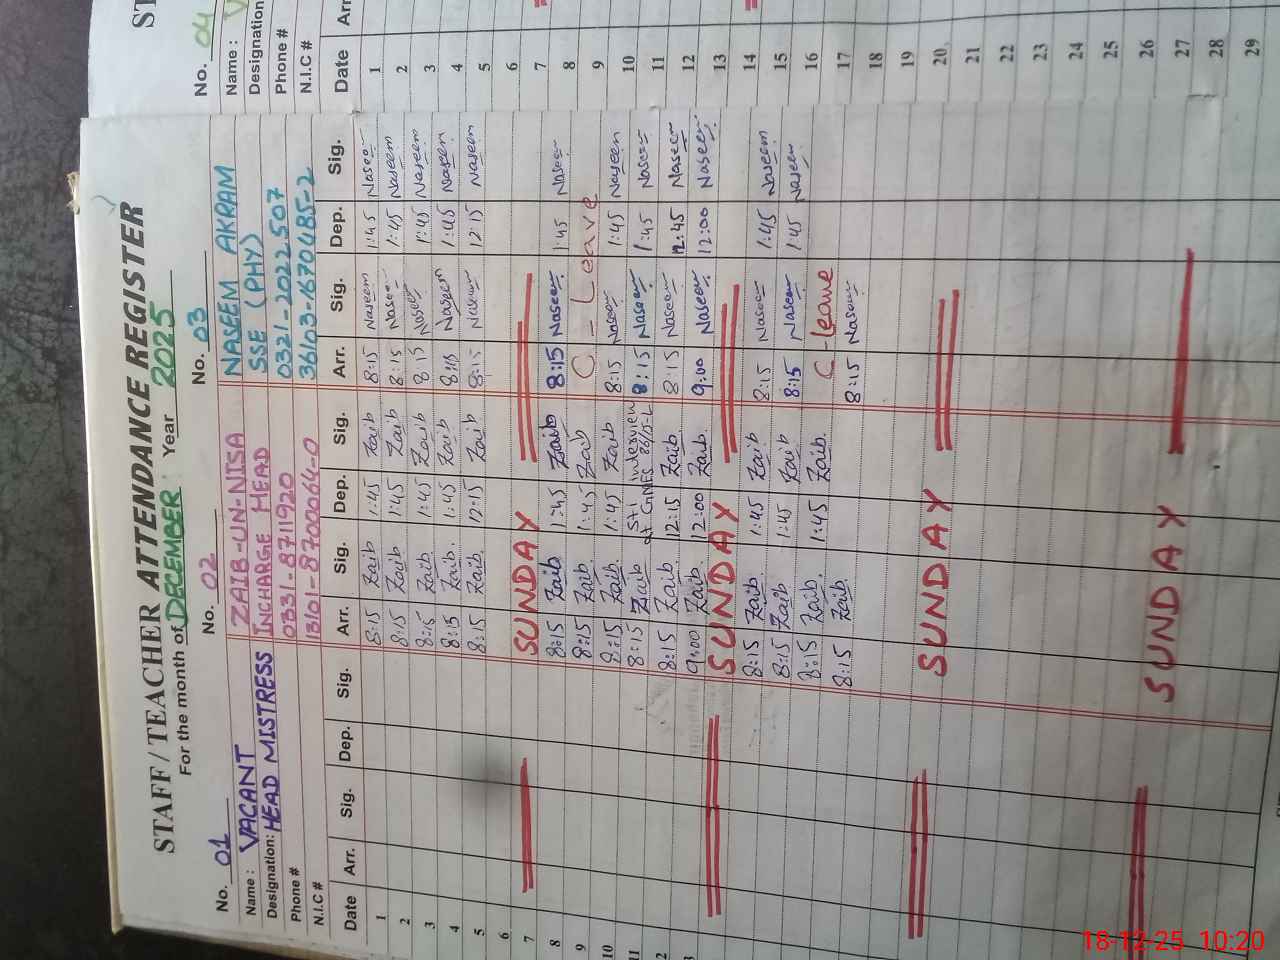 STAFF / TEACHER ATTENDANCE REGISTER
For the month of DECEMBER Year 2025
No. 01 No. 02 No. 03
Name : VACANT ZAIB-UN-NISA NASEEM AKRAM
Designation: HEAD MISTRESS INCHARGE HEAD SSE (PHY)
Phone # 0331-8711920 0321-2022507
N.I.C # 13101-8700064-0 36103-1670485-2
Date Arr. Sig. Dep. Sig. Arr. Sig. Dep. Sig. Arr. Sig. Dep. Sig.
1 8:15 Zaib 1:45 Zaib 8:15 Naseem 1:45 Naseem
2 8:15 Zaib 1:45 Zaib 8:15 Naseem 1:45 Naseem
3 8:15 Zaib 1:45 Zaib 8:15 Naseem 1:45 Naseem
4 8:15 Zaib. 1:45 Zaib 8:15 Naseem 1:45 Naseem
5 8:15 Zaib. 12:15 Zaib 8:15 Naseem 12:15 Naseem
6
7 SUNDAY
8 8:15 Zaib 1:45 Zaib 8:15 Naseem. 1:45 Naseem
9 8:15 Zaib. 1:45 Zaib C - Leave
10 8:15 Zaib. 1:45 Zaib 8:15 Naseem 1:45 Naseem
11 8:15 Zaib STI interview at GGHES 86/D-L 8:15 Naseem 1:45 Naseem
2 8:15 Zaib. 12:15 Zaib. 8:15 Naseem 12:45 Naseem
3 9:00 Zaib. 12:00 Zaib. 9:00 Naseem. 12:00 Naseem.
SUNDAY
8:15 Zaib 1:45 Zaib 8:15 Naseem 1:45 Naseem
8:15 Zaib 1:45 Zaib 8:15 Naseem 1:45 Naseem
8:15 Zaib. 1:45 Zaib. C - leave
8:15 Zaib. 8:15 Naseem
SUNDAY
SUNDAY
ST
No. 04
Name :
Designation
Phone #
N.I.C #
Date Arr
1
2
3
4
5
6
7
8
9
10
11
12
13
14
15
16
17
18
19
20
21
22
23
24
25
26
27
28
29
18-12-25 10:20